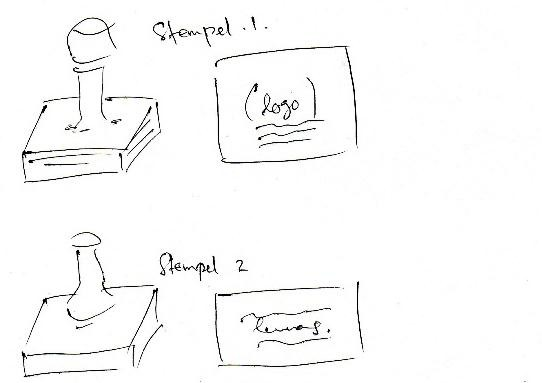 Stempel .1.
(logo)
Stempel 2